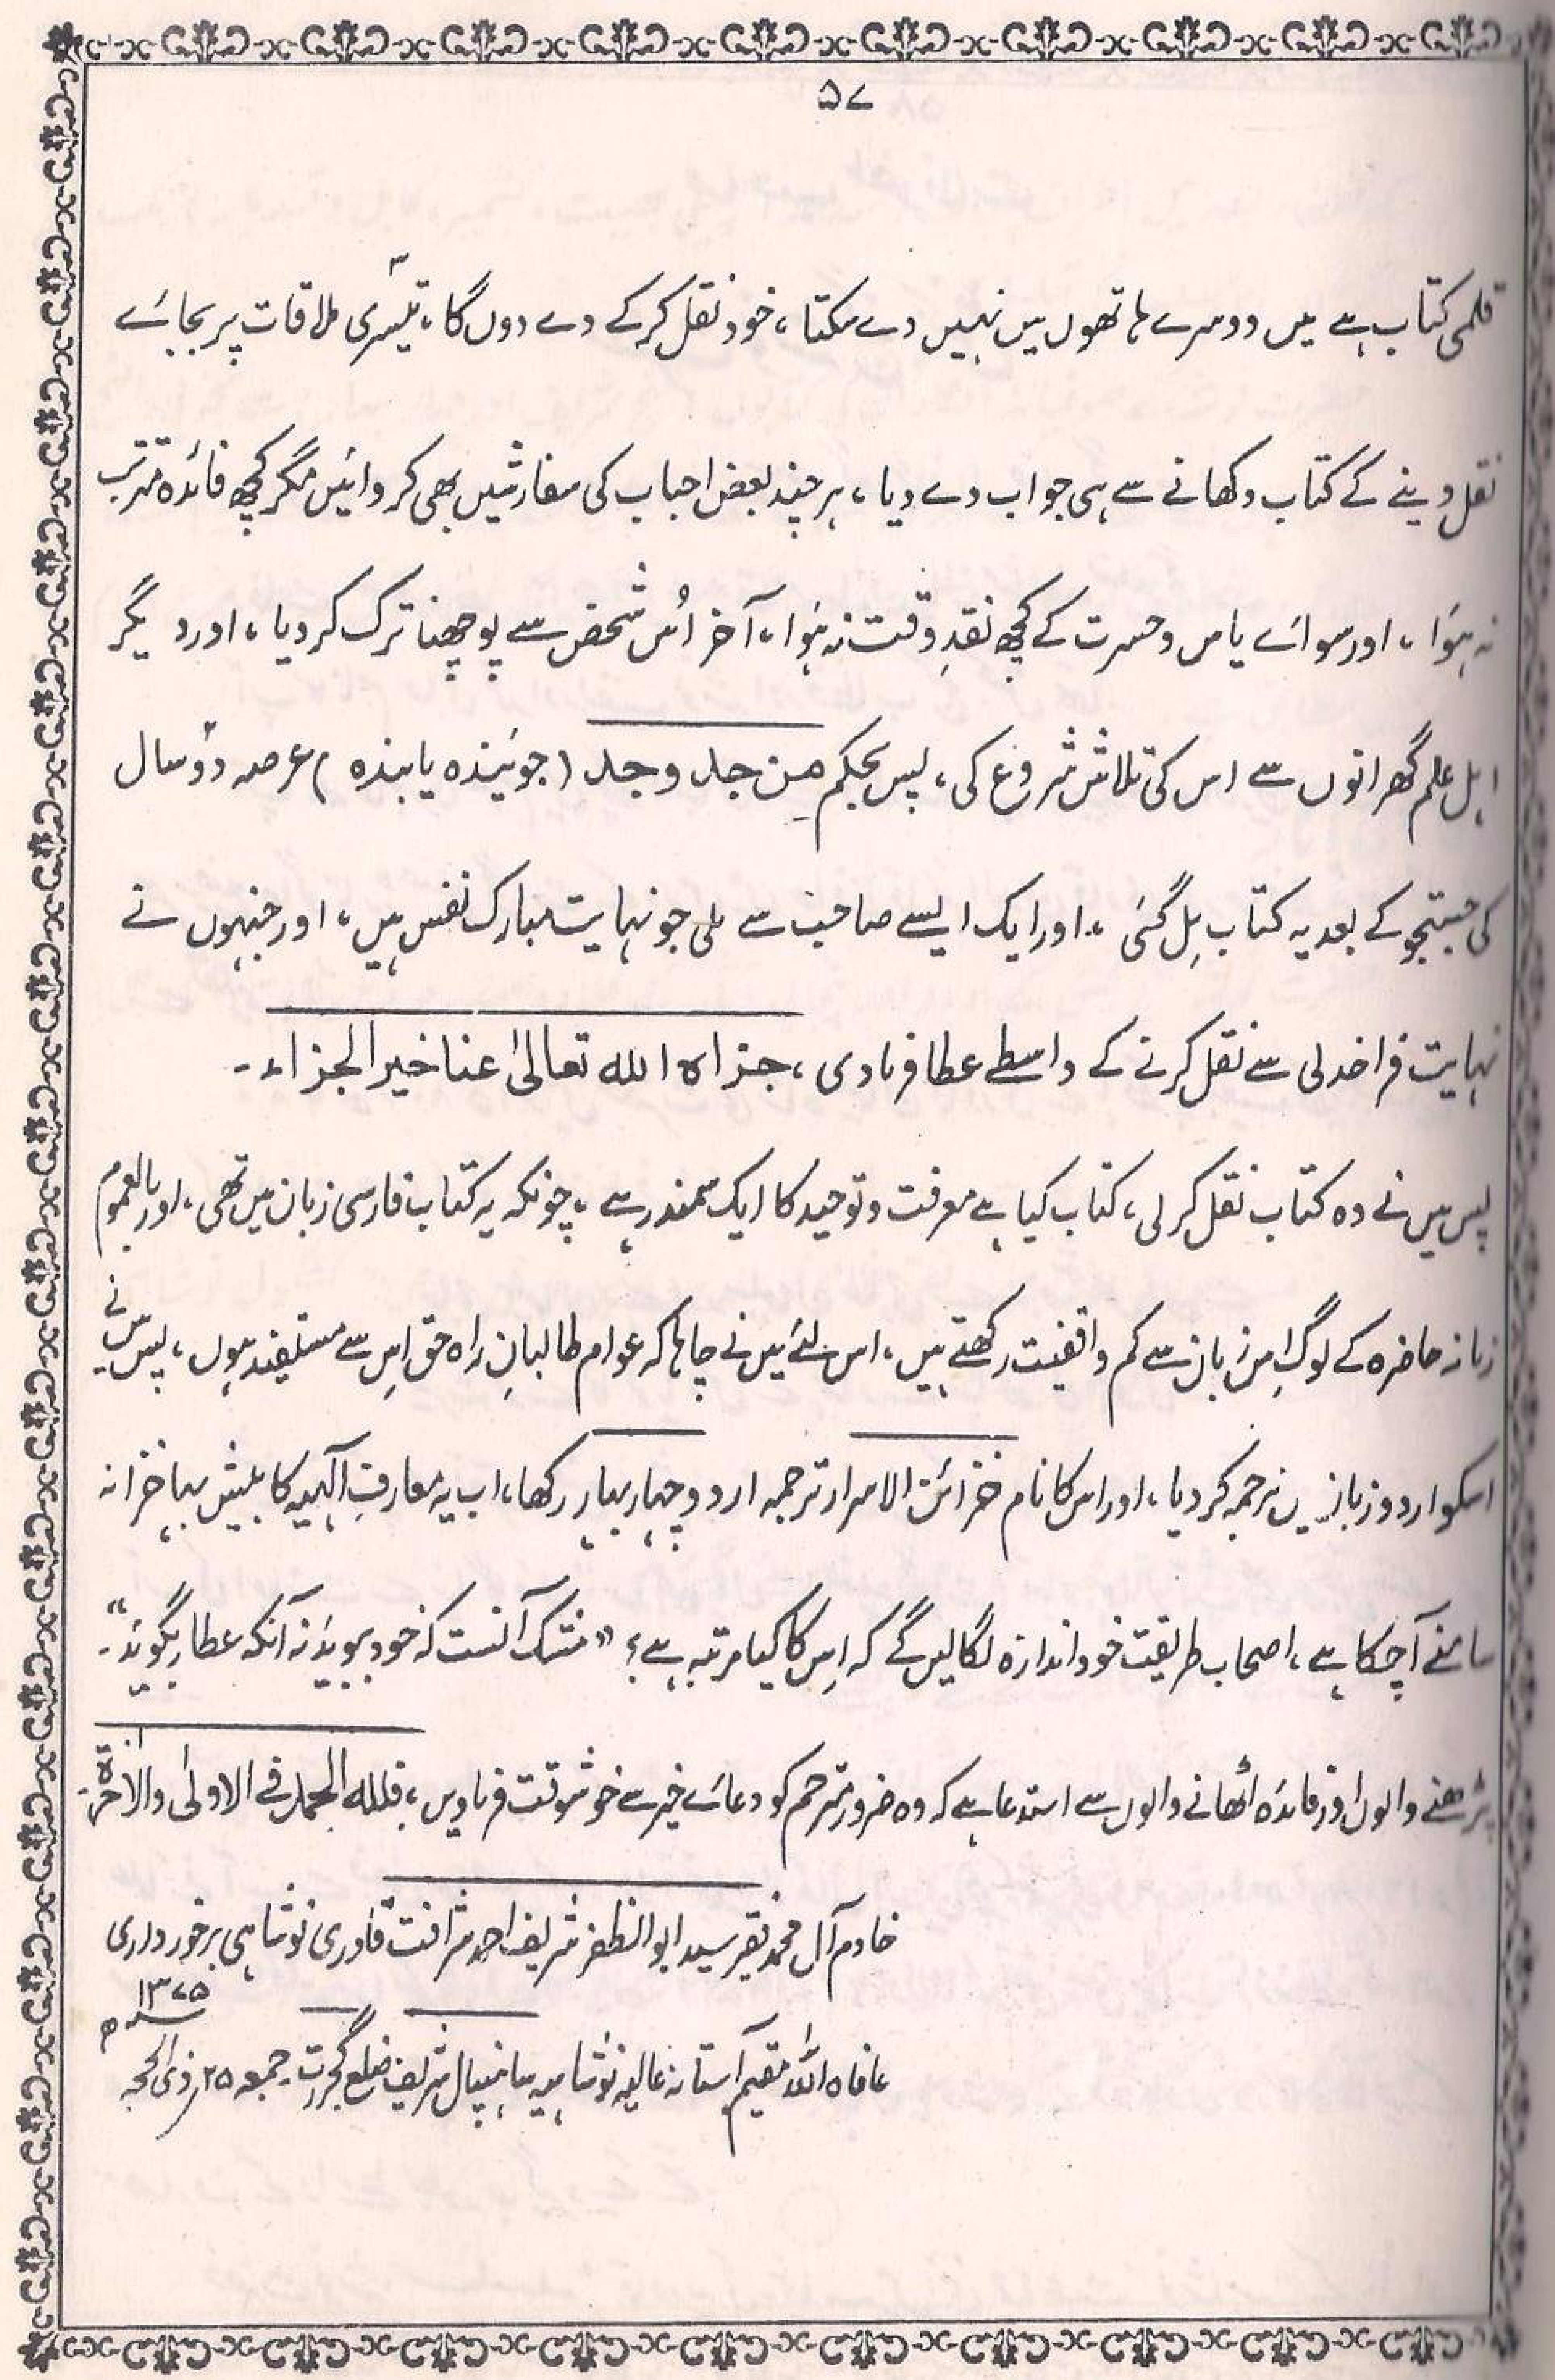 ۵۷
قلمی کتاب ہے میں دوسرے ہاتھوں میں نہیں دے سکتا، خود نقل کرکے دے دوں گا، تیسری ملاقات پر بجائے
نقل دینے کے کتاب دکھانے سے ہی جواب دے دیا، ہر چند بعض احباب کی سفارشیں بھی کروائیں مگر کچھ فائدہ مترتب
نہ ہؤا، اور سوائے یاس و حسرت کے کچھ نقدِ وقت نہ ہؤا، آخر اُس شخص سے پوچھنا ترک کر دیا، اور دیگر
اہل علم گھرانوں سے اس کی تلاش شروع کی، پس بحکم مِن جد وجد (جوئیندہ یابندہ) عرصہ دو۲ سال
کی جستجو کے بعد یہ کتاب مِل گئی، اور ایک ایسے صاحب سے ملی جو نہایت مبارک نفس ہیں، اور جنہوں نے
نہایت فراخدلی سے نقل کرنے کے واسطے عطا فرمادی، جزاہ اللہ تعالیٰ عنا خیر الجزاء۔
پس میں نے وہ کتاب نقل کر لی، کتاب کیا ہے معرفت و توحید کا ایک سمندر ہے، چونکہ یہ کتاب فارسی زبان میں تھی، اور بالعموم
زمانہ حاضرہ کے لوگ اِس زبان سے کم واقفیت رکھتے ہیں، اس لئے میں نے چاہا کہ عوام طالبانِ راہ حق اِس سے مستفید ہوں، پس میں نے
اسکو اردو زبان میں ترجمہ کر دیا، اور اس کا نام خزائن الاسرار ترجمہ اردو چہار بہار رکھا، اب یہ معارفِ الٰہیہ کا بیش بہا خزانہ
سامنے آچکا ہے، اصحاب طریقت خود اندازہ لگالیں گے کہ اِس کا کیا مرتبہ ہے؟ "مشک آنست کہ خود ببوید نہ آنکہ عطار بگوید"۔
پڑھنے والوں اور فائدہ اُٹھانے والوں سے استدعا ہے کہ وہ ضرور مترجم کو دعائے خیر سے خوشوقت فرماویں، فللہ الحمد فے الاولیٰ والاٰخرۃ۔
خادم آل محمد فقیر سید ابوالظفر شریف احمد شرافت قادری نوشاہی برخورداری
عافاہ اللہ مقیم آستانہ عالیہ نوشاہیہ ساہنپال شریف ضلع گجرات۔ جمعہ ۲۵ ذی الحجہ ۱۳۷۵ھ